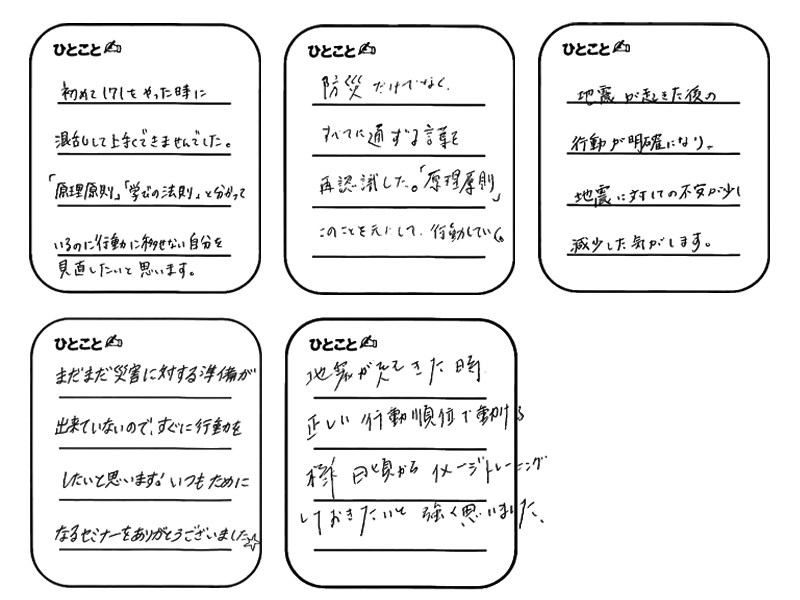 ひとこと
初めて171をやった時に
混乱して上手くできませんでした。
「原理原則」「学びの法則」と分かって
いるのに行動に移せない自分を
見直したいと思います。
ひとこと
防災だけでなく、
すべてに通ずる言葉を
再認識した。「原理原則」
このことを元にして、行動していく。
ひとこと
地震が起きた後の
行動が明確になり、
地震に対しての不安が少し
減少した気がします。
ひとこと
まだまだ災害に対する準備が
出来ていないので、すぐに行動を
したいと思います! いつもために
なるセミナーをありがとうございました☆
ひとこと
地震が起きた時
正しい行動順位で動ける
様 日頃から イメージトレーニング
しておきたいと 強く思いました。